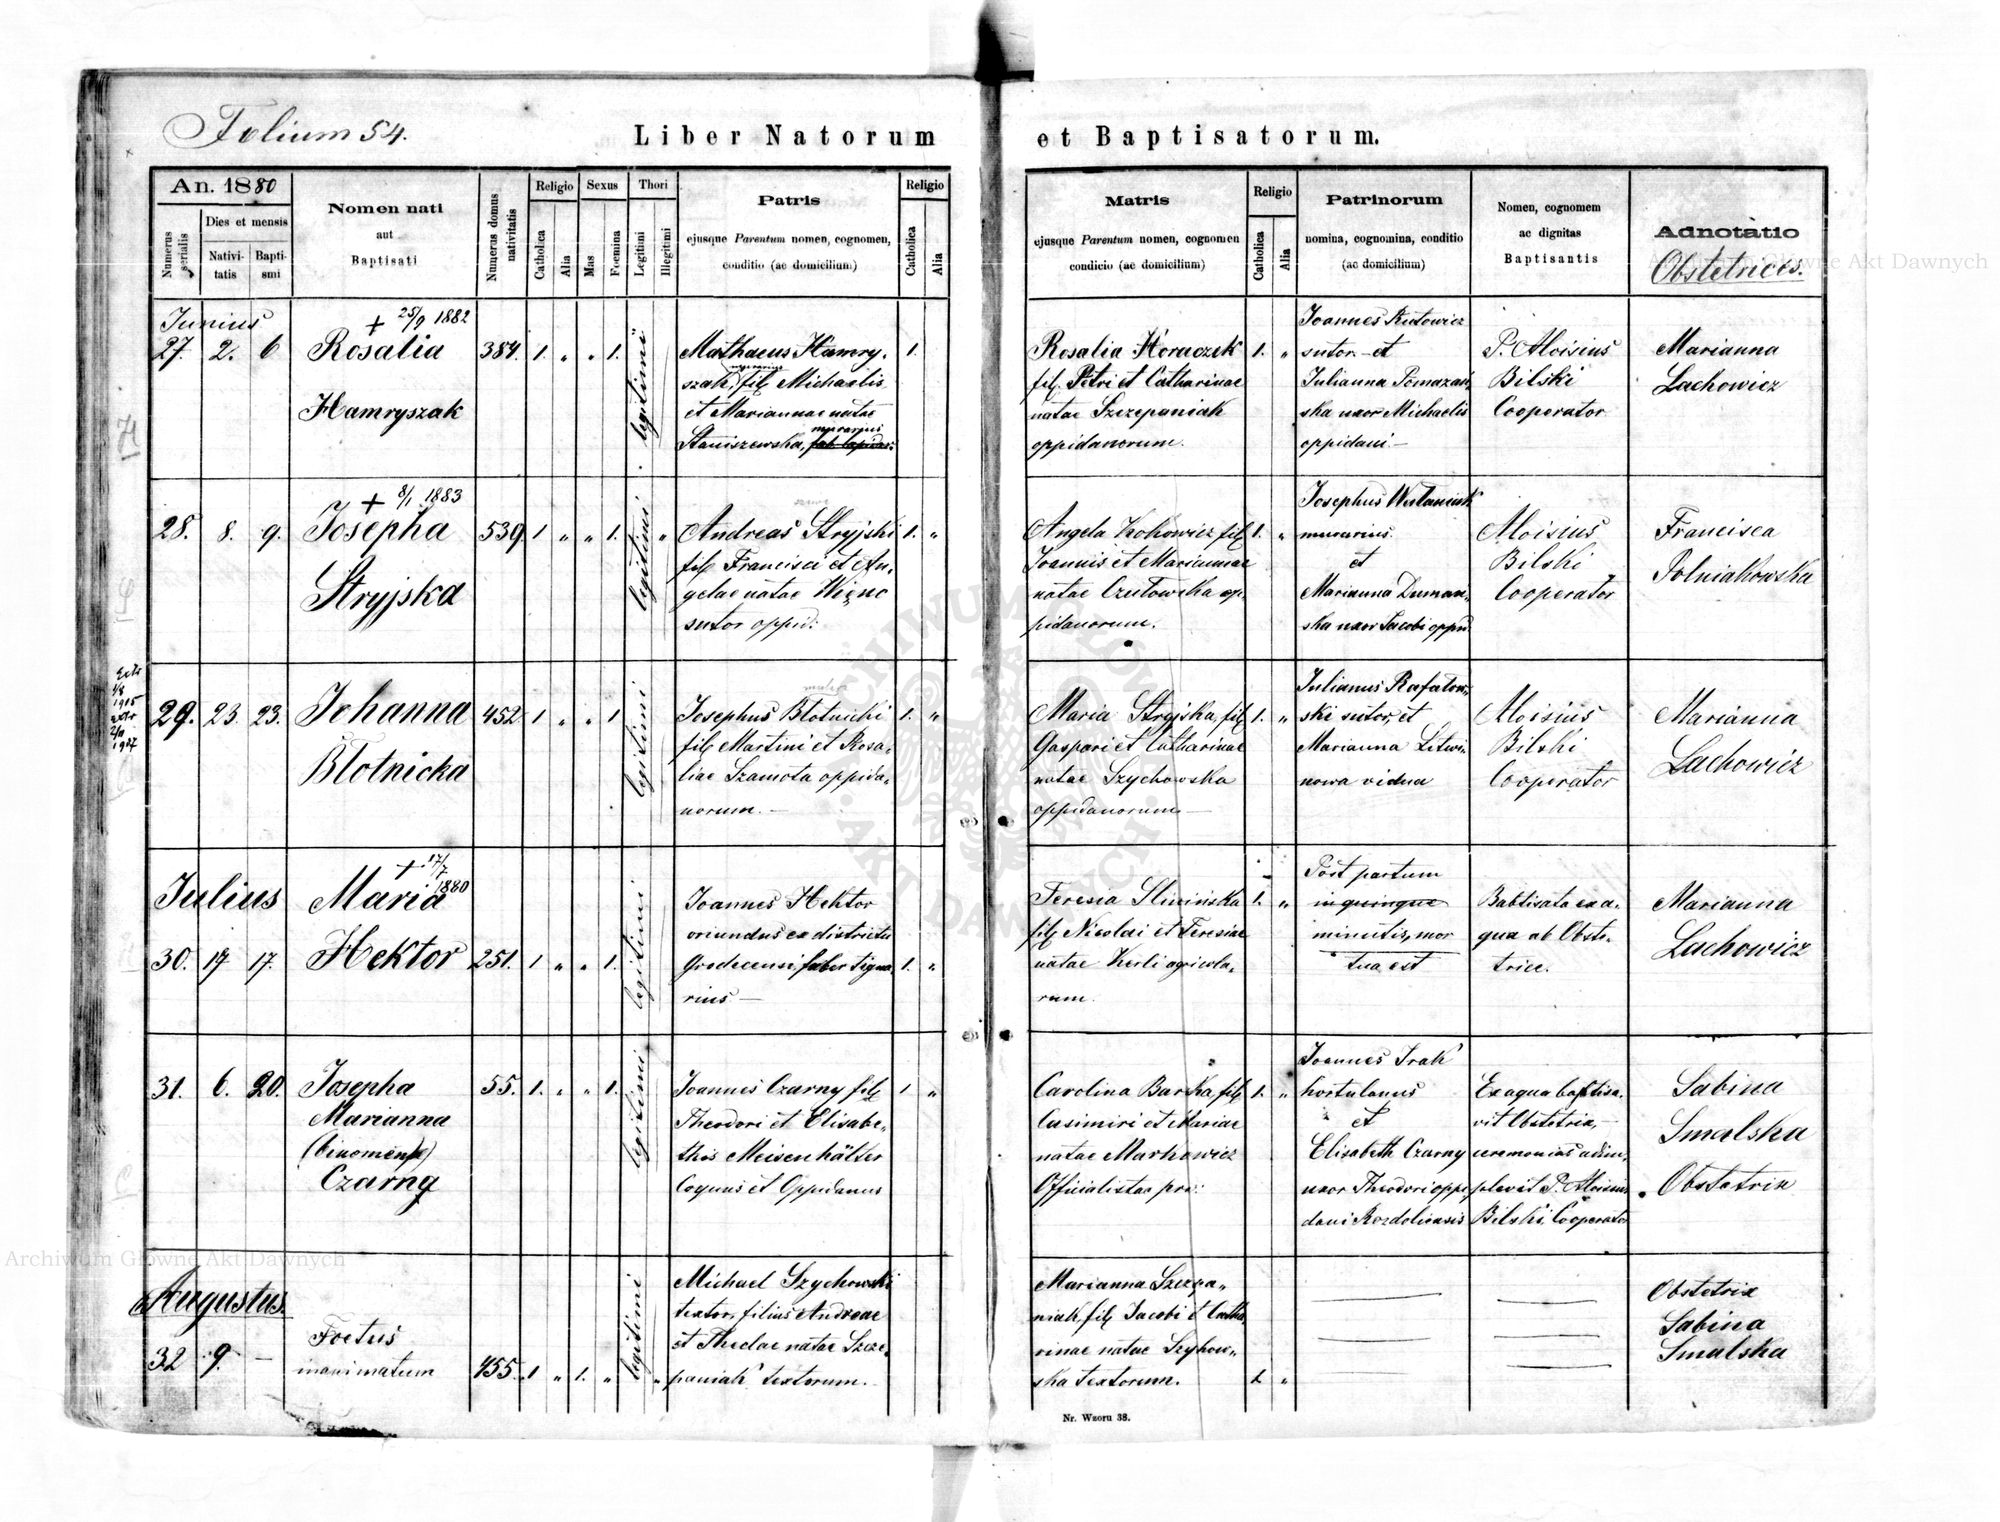 Folium 54.
Liber Natorum et Baptisatorum.
An. 1880
Numerus serialis
Dies et mensis
Nativitatis
Baptismi
Nomen nati
aut
Baptisati
Numerus domus nativitatis
Religio
Catholica
Alia
Sexus
Mas
Foemina
Thori
Legitimi
Illegitimi
Patris
ejusque Parentum nomen, cognomen,
conditio (ac domicilium)
Religio
Catholica
Alia
Matris
ejusque Parentum nomen, cognomen
condicio (ac domicilium)
Religio
Catholica
Alia
Patrinorum
nomina, cognomina, conditio
(ac domicilium)
Nomen, cognomem
ac dignitas
Baptisantis
Adnotatio
Obstetrices.
Junius
27. 2. 6
+ 25/9 1882
Rosalia
Hamryszak
384. 1. „ „ 1.
legitimi
Mathaeus Hamry-
szak, fil. Michaelis
et Mariannae natae
Staniszewska, murarius
1.
Rosalia Horaczek
fil. Petri et Catharinae
natae Szczepaniak
oppidanorum.
1. „
Joannes Rutowicz
sutor et
Julianna Pomazań-
ska uxor Michaelis
oppidani —
P. Aloisius
Bilski
Cooperator
Marianna
Lachowicz
28. 8. 9.
+ 8/1 1883
Josepha
Stryjska
539. 1 „ „ 1.
legitimi „
Andreas Stryjski
fil. Francisci et An-
gelae natae Więnc
sutor oppid:
1. „
Angela Kohowicz fil.
Joannis et Mariannae
natae Czutowska op-
pidanorum.
1. „
Josephus Wulaniuk
murarius.
et
Marianna Duman-
ska uxor Jacobi oppid.
Aloisius
Bilski
Cooperator
Francisca
Polniakowska
29. 23. 23.
Johanna
Blotnicka
452 1 „ „ 1
legitimi
Josephus Blotnicki
fil. Martini et Rosa-
liae Szamota oppida-
norum. —
1. „
Maria Stryjska, fil.
Gaspari et Catharinae
natae Szychowska
oppidanorum —
1. „
Julianus Rafalow-
ski sutor, et
Marianna Litwi-
nowa vidua
Aloisius
Bilski
Cooperator
Marianna
Lachowicz
Julius
30. 17 17.
+ 17/7 1880
Maria
Hektor
251. 1 „ „ 1.
legitimi
Joannes Hektor
oriundus ex districtu
Grodecensi, faber tigna-
rius —
1. „
Teresia Slinińska
fil. Nicolai et Teresiae
natae Kerli agricola-
rum.
1. „
Post partum
in quinque
minutis, mor
tua est
Babtisata ex a-
qua ab Obste-
trice.
Marianna
Lachowicz
31. 6. 20.
Josepha
Marianna
Czarny
55. 1. „ „ 1.
legitimi
Joannes Czarny fil.
Theodori et Elisabe-
this Meisenhälter
Coquus et Oppidanus
1 „
Carolina Barska, fil.
Casimiri et Mariae
natae Markowicz
Officialistae priv:
1. „
Joannes Irak
hortulanus
et
Elisabeth Czarny
uxor Theodori oppi-
dani Rozdoliensis
Ex aqua baptisa-
vit Obstetrix, —
ceremonias adim-
plevit P. Aloisius
Bilski, Cooperator
Sabina
Smalska
Obstetrix
Augustus.
32 9. —
Foetus
inanimatum
455. 1 „ 1. „
legitimi „
Michael Szychowski
textor, filius Andreae
et Theclae natae Szcze-
paniak textorum.
Marianna Szczepa-
niak, fil. Jacobi et Catha-
rinae natae Szychow-
ska textorum.
1. „
Obstetrix
Sabina
Smalska
Nr. Wzoru 38.
Archiwum Główne Akt Dawnych